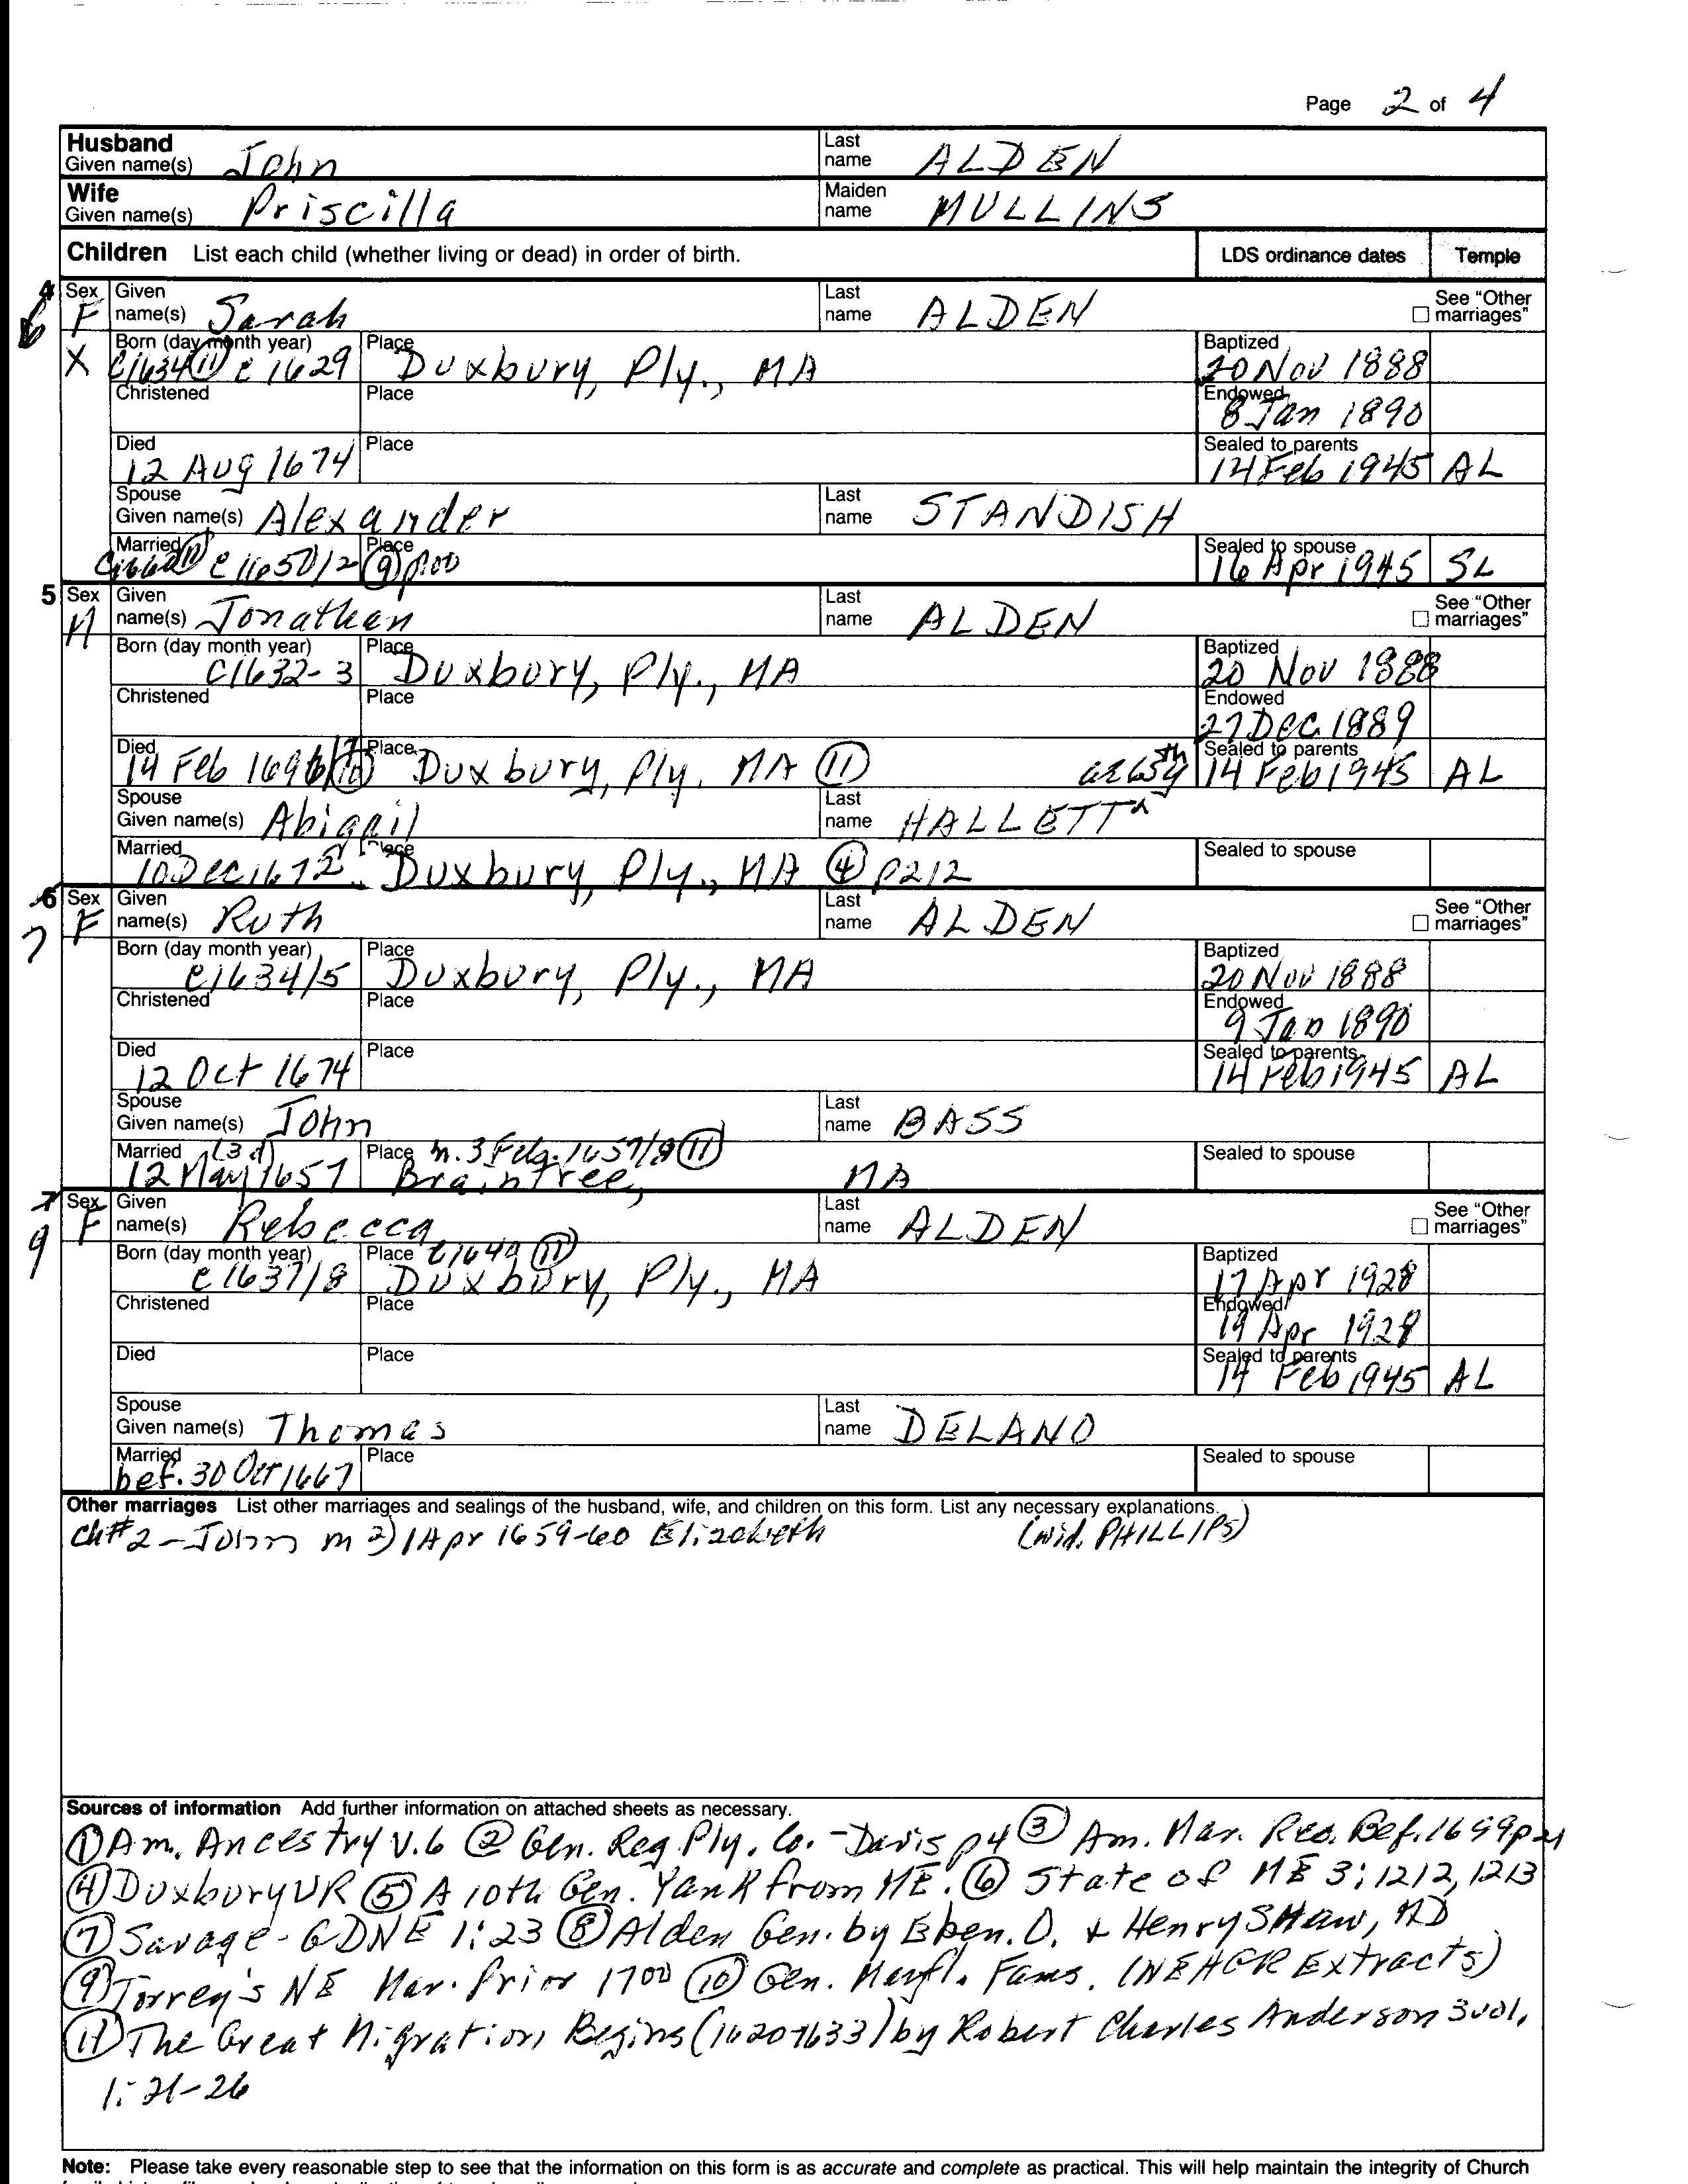 Page 2 of 4
Husband Given name(s) John Last name ALDEN
Wife Given name(s) Priscilla Maiden name MULLINS
Children List each child (whether living or dead) in order of birth. LDS ordinance dates Temple
4 6 Sex F Given name(s) Sarah Last name ALDEN See "Other marriages"
X Born (day month year) c1634 (11) c 1629 Place Duxbury, Ply., MA Baptized 20 Nov 1888
Christened Place Endowed 8 Jan 1890
Died 12 Aug 1674 Place Sealed to parents 14 Feb 1945 AL
Spouse Given name(s) Alexander Last name STANDISH
Married c 1650/2 Place (9) p700 Sealed to spouse 16 Apr 1945 SL
5 Sex M Given name(s) Jonathan Last name ALDEN See "Other marriages"
Born (day month year) c1632-3 Place Duxbury, Ply., MA Baptized 20 Nov 1888
Christened Place Endowed 27 Dec 1889
Died 14 Feb 1696 Place Duxbury, Ply. MA (11) Sealed to parents 14 Feb 1945 AL
Spouse Given name(s) Abigail Last name HALLETT
Married 10 Dec 1672 Place Duxbury, Ply., MA (4) p212 Sealed to spouse
6 7 Sex F Given name(s) Ruth Last name ALDEN See "Other marriages"
Born (day month year) c1634/5 Place Duxbury, Ply., MA Baptized 20 Nov 1888
Christened Place Endowed 9 Jan 1890
Died 12 Oct 1674 Place Sealed to parents 14 Feb 1945 AL
Spouse Given name(s) John Last name BASS
Married (3d) 12 May 1657 Place m. 3 Feb. 1657/8 (11) Braintree, MA Sealed to spouse
7 9 Sex F Given name(s) Rebecca Last name ALDEN See "Other marriages"
Born (day month year) c1637/8 Place c1649 (11) Duxbury, Ply., MA Baptized 17 Apr 1928
Christened Place Endowed 19 Apr 1928
Died Place Sealed to parents 14 Feb 1945 AL
Spouse Given name(s) Thomas Last name DELANO
Married bef. 30 Oct 1667 Place Sealed to spouse
Other marriages List other marriages and sealings of the husband, wife, and children on this form. List any necessary explanations.
Ch#2 - John m 2) 1 Apr 1659-60 Elizabeth (wid. PHILLIPS)
Sources of information Add further information on attached sheets as necessary.
(1) Am. Ancestry V.6 (2) Gen. Reg. Ply. Co. - Davis p4 (3) Am. Mar. Rec. Bef. 1699 p21
(4) Duxbury VR (5) A 10th Gen. Yank from ME. (6) State of ME 3:1212, 1213
(7) Savage - GDNE 1:23 (8) Alden Gen. by Eben. D. + Henry SHaw, MD
(9) Torrey's NE Mar. Prior 1700 (10) Gen. Mayfl. Fams. (NEHGR Extracts)
(11) The Great Migration Begins (1620-1633) by Robert Charles Anderson 3vol.
1:21-26
Note: Please take every reasonable step to see that the information on this form is as accurate and complete as practical. This will help maintain the integrity of Church